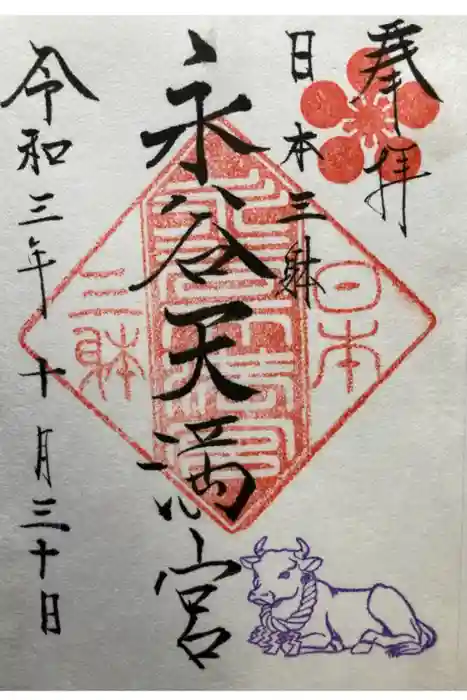 奉拝
日本三躰
永谷天満宮
令和三年十月三十日
日本
永谷天満宮
三躰